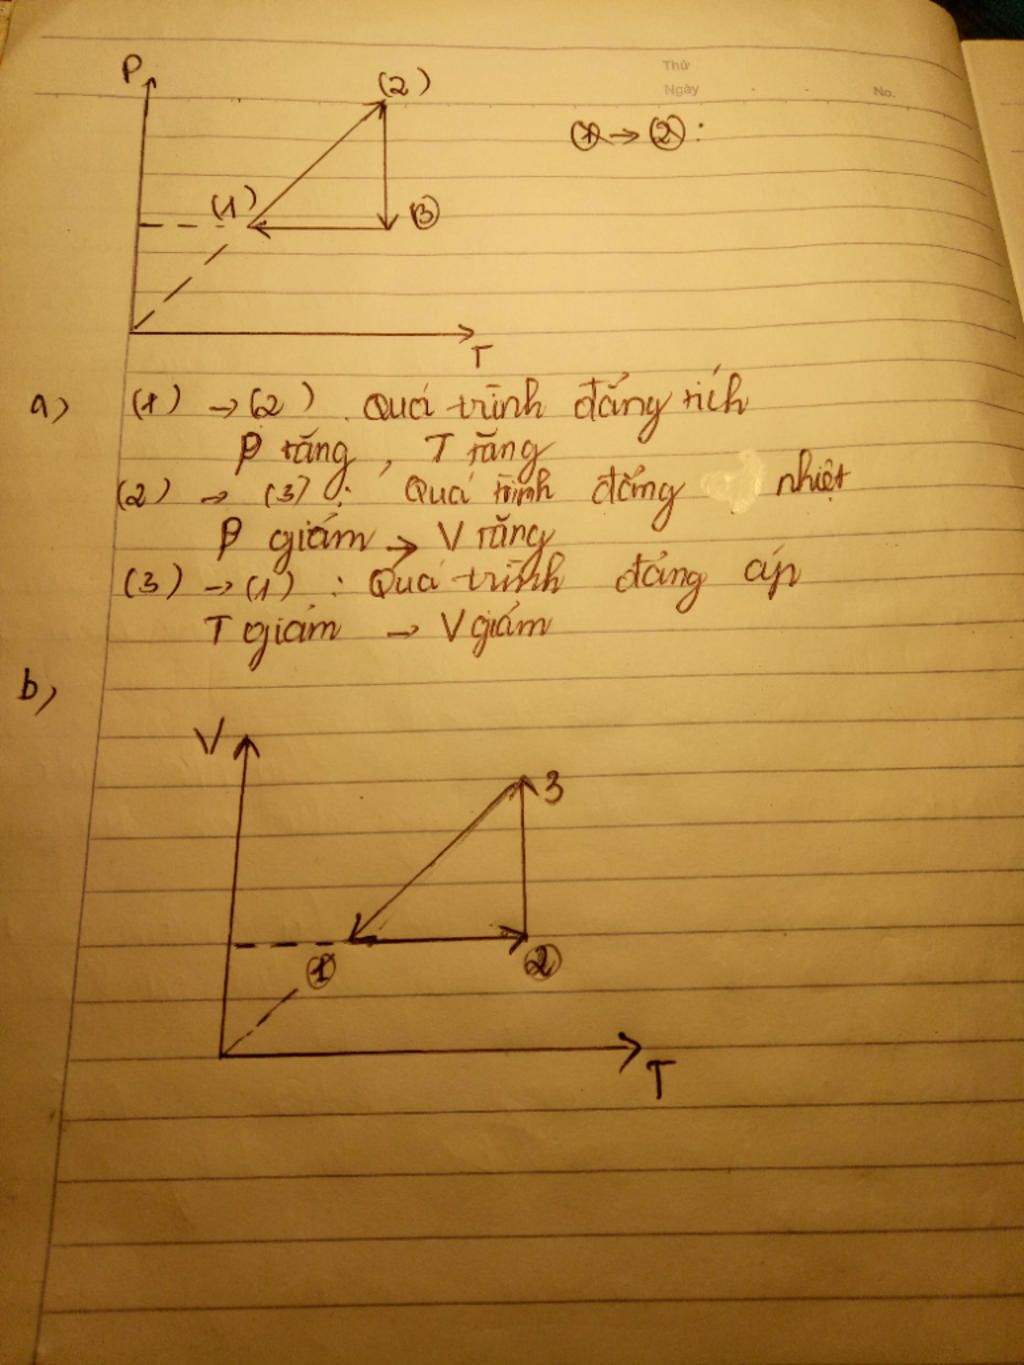 Thứ
Ngày . . No.
P
(2)
(1) → (2) :
(1)
(3)
T
a) (1) → (2) . Quá trình đẳng tích
P tăng , T tăng
(2) → (3) : Quá trình đẳng nhiệt
P giảm → V tăng
(3) → (1) : Quá trình đẳng áp
T giảm → V giảm
b)
V
3
1
2
T